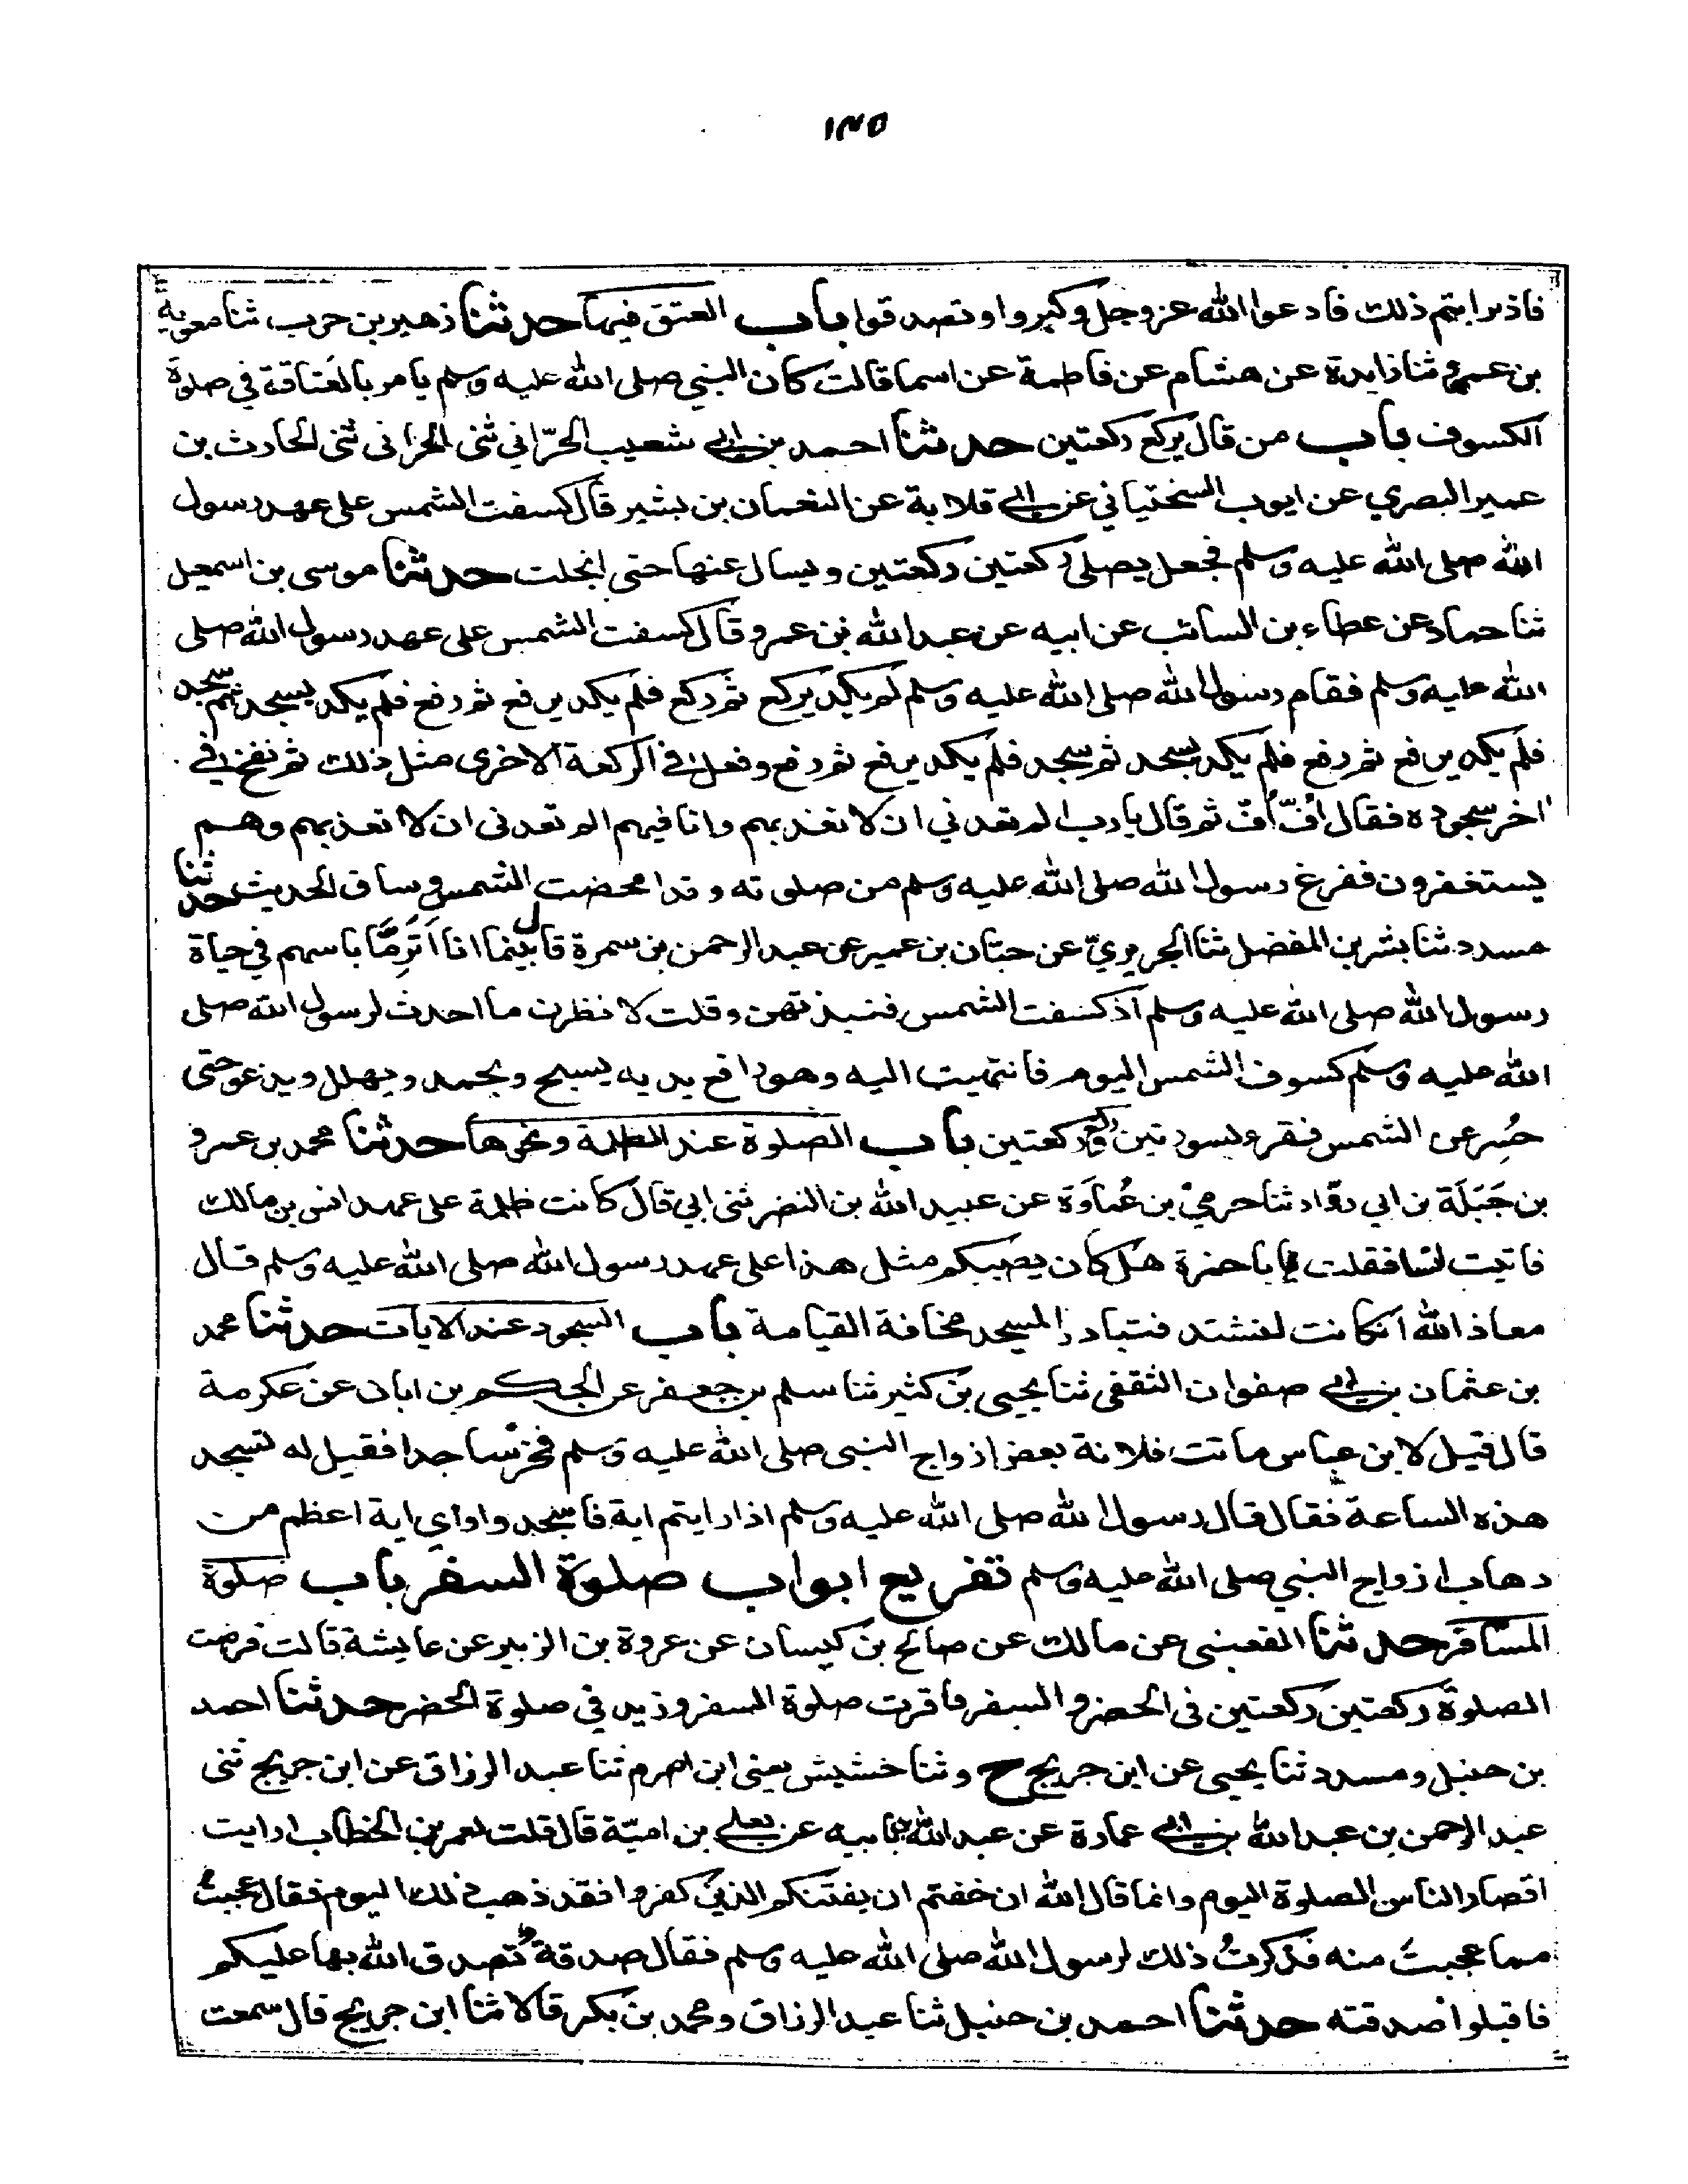 ١٣٥
فاذا رايتم ذلك فادعوا الله عز وجل وكبروا وتصدقوا باب العتق فيها حدثنا زهير بن حرب ثنا معوية
بن عمرو ثنا زايدة عن هشام عن فاطمة عن اسما قالت كان النبي صلى الله عليه وسلم يامر بالعَتاقة في صلوة
الكسوف باب من قال يركع ركعتين حدثنا احمد بن ابي شعيب الحرّاني ثنى الحراني ثنى الحارث بن
عمير البصري عن ايوب السختياني عن ابي قلابة عن النعمان بن بشير قال كسفت الشمس على عهد رسول
الله صلى الله عليه وسلم فجعل يصلي ركعتين ركعتين ويسال عنها حتى انجلت حدثنا موسى بن اسمعيل
ثنا حماد عن عطاء بن السائب عن ابيه عن عبد الله بن عمرو قال كسفت الشمس على عهد رسول الله صلى
الله عليه وسلم فقام رسول الله صلى الله عليه وسلم لم يكد يركع ثم ركع فلم يكد يرفع ثم رفع فلم يكد يسجد ثم سجد
فلم يكد يرفع ثم رفع فلم يكد يسجد ثم سجد فلم يكد يرفع ثم رفع وفعل في الركعة الاخرى مثل ذلك ثم نفخ في
اخر سجوده فقال اُفّ اُفّ ثم قال يا رب الم تعدني ان لا تعذبهم وانا فيهم الم تعدنى ان لا تعذبهم وهم
يستغفرون ففرغ رسول الله صلى الله عليه وسلم من صلوته وقد امحضت الشمس وساق الحديث حدثنا
مسدد ثنا بشر بن المفضل ثنا الجريريّ عن حيّان بن عمير عن عبد الرحمن بن سمرة قال بينما انا اَتَرمَّا باسهم في حياة
رسول الله صلى الله عليه وسلم اذ كسفت الشمس فنبذتهن وقلت لانظرن ما احدث لرسول الله صلى
الله عليه وسلم كسوف الشمس اليوم فانتهيت اليه وهو رافع يديه يسبح ويحمد ويهلل ويدعو حتى
حُسِر عن الشمس فقرء بسورتين وركع ركعتين باب الصلوة عند الظلمة ونحوها حدثنا محمد بن عمرو
بن جَبَلَة بن ابي روّاد ثنا حرميّ بن عُمَاوَة عن عبيد الله بن النضر ثنى ابي قال كانت ظلمة على عهد انس بن مالك
فاتيت انسا فقلت يا با حمزة هل كان يصيبكم مثل هذا على عهد رسول الله صلى الله عليه وسلم قال
معاذ الله ان كانت لتشتد فنبادر المسجد مخافة القيامة باب السجود عند الايات حدثنا محمد
بن عثمان بن ابي صفوان الثقفى ثنا يحيى بن كثير ثنا سلم بن جعفر عن الحكم بن ابان عن عكرمة
قال قيل لابن عباس ماتت فلانة بعض ازواج النبى صلى الله عليه وسلم فخرّ ساجدا فقيل له تسجد
هذه الساعة فقال قال رسول الله صلى الله عليه وسلم اذا رايتم اية فاسجدوا واي اية اعظم من
دهاب ازواج النبي صلى الله عليه وسلم تفريع ابواب صلوة السفر باب صلوة
المسَافر حدثنا القعنبى عن مالك عن صالح بن كيسان عن عروة بن الزبير عن عايشة قالت فرضت
الصلوة ركعتين ركعتين فى الحضر والسفر فاقرت صلوة السفر وزيد في صلوة الحضر حدثنا احمد
بن حنبل ومسدد ثنا يحيى عن ابن جريج ح وثنا خشيش يعنى ابن اصرم ثنا عبد الرزاق عن ابن جريج ثنى
عبد الرحمن بن عبد الله بن ابي عمارة عن عبد الله بن بابيه عن يعلى بن اميّة قال قلت لعمر بن الخطاب ارايت
اقصار الناس الصلوة اليوم وانما قال الله ان خفتم ان يفتنكم الذين كفروا فقد ذهب ذلك اليوم فقال عجبتُ
مما عجبتَ منه فذكرتُ ذلك لرسول الله صلى الله عليه وسلم فقال صدقة تصدق الله بها عليكم
فاقبلوا صدقته حدثنا احمد بن حنبل ثنا عبد الرزاق ومحمد بن بكر قالا ثنا ابن جريج قال سمعت